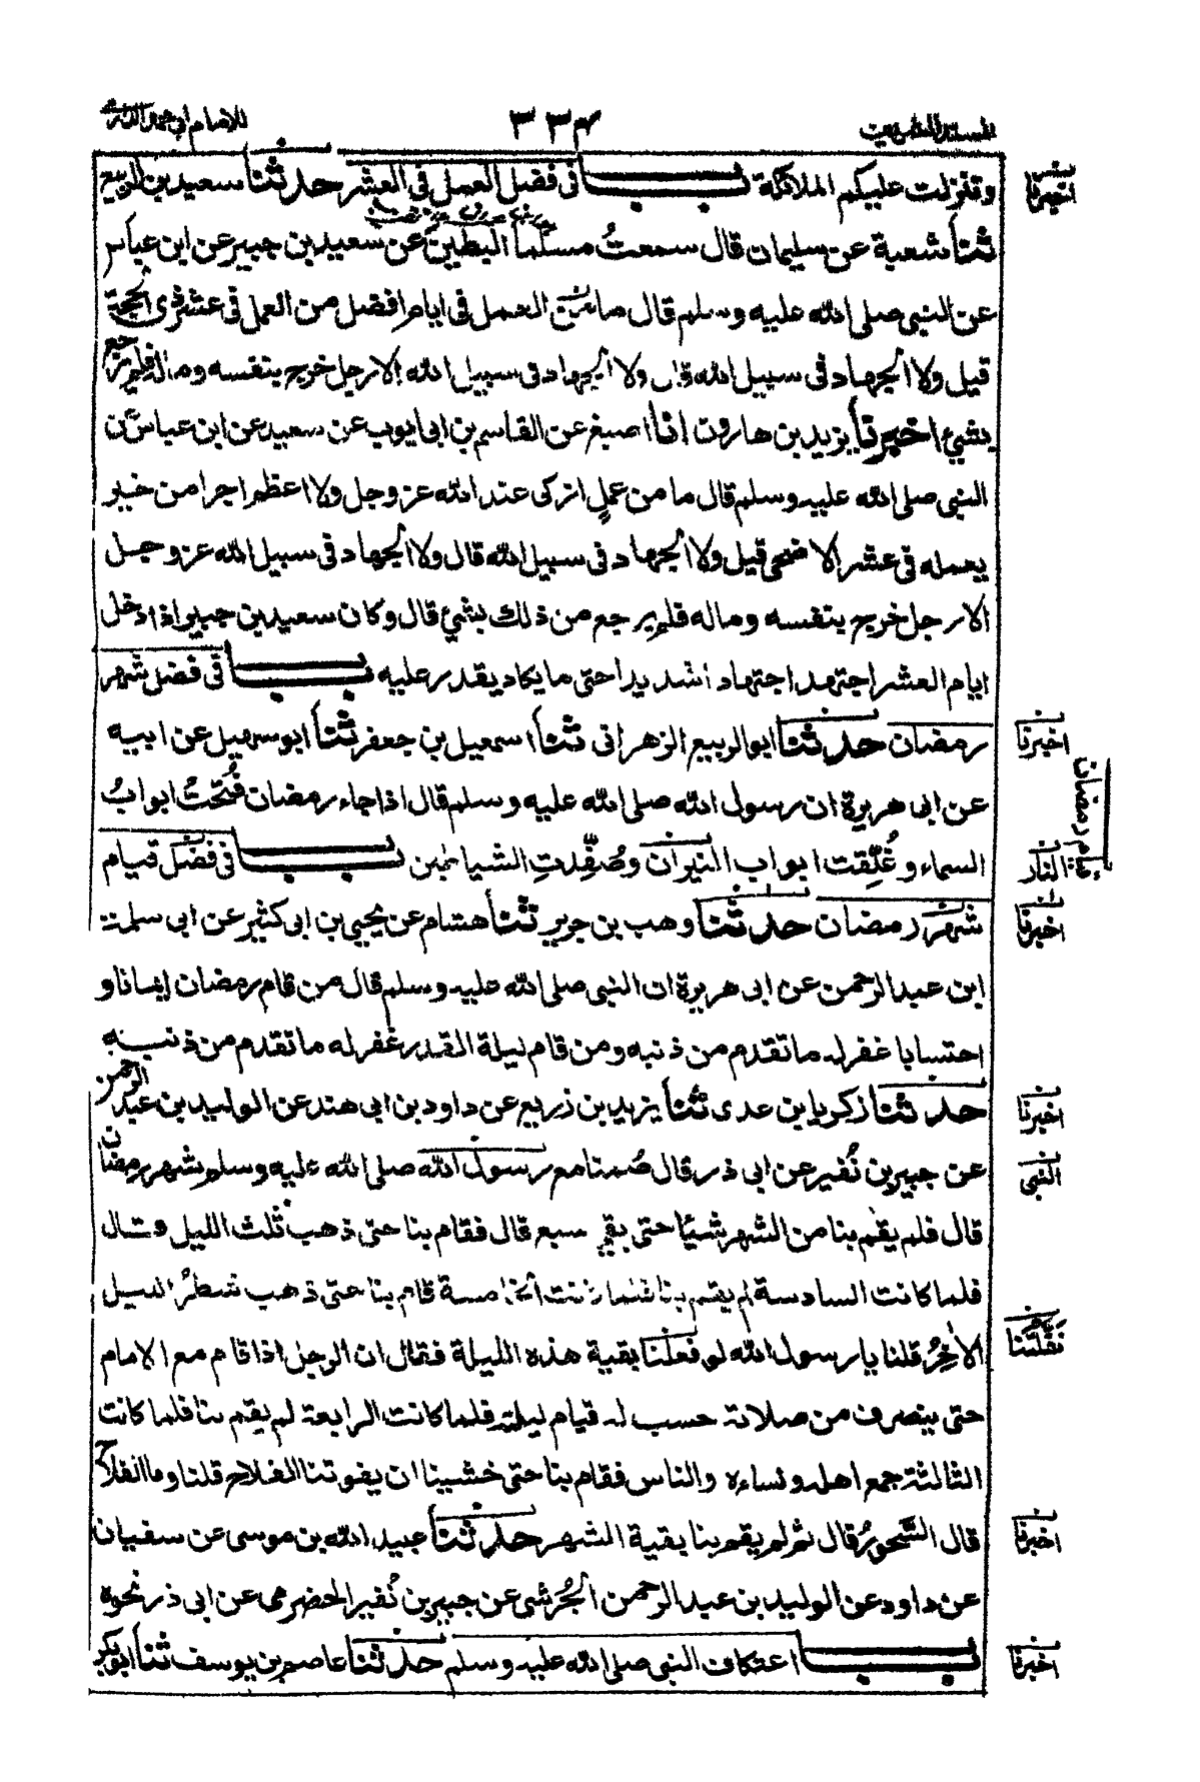 للامام ابي محمد الدارمي ٣٣٤ المسند
وتنزلت عليكم الملائكة باب في فضل العمل في العشر حدثنا سعيد بن الربيع
اخبرنا
ثنا شعبة عن سليمان قال سمعت مسلما البطين عن سعيد بن جبير عن ابن عباس
عن النبي صلى الله عليه وسلم قال ما من العمل في ايام افضل من العمل في عشر ذى الحجة
قيل ولا الجهاد في سبيل الله قال ولا الجهاد في سبيل الله الا رجل خرج بنفسه وماله فلم يرجع
بشيء اخبرنا يزيد بن هارون انا اصبغ عن القاسم بن ابى ايوب عن سعيد عن ابن عباس عن
النبى صلى الله عليه وسلم قال ما من عمل ازكى عند الله عز وجل ولا اعظم اجرا من خير
يعمله في عشر الاضحى قيل ولا الجهاد في سبيل الله قال ولا الجهاد في سبيل الله عز وجل
الا رجل خرج بنفسه وماله فلم يرجع من ذلك بشيء قال وكان سعيد بن جبير اذا دخل
ايام العشر اجتهد اجتهادا شديدا حتى ما يكاد يقدر عليه باب في فضل شهر
رمضان حدثنا ابو الربيع الزهرانى ثنا اسمعيل بن جعفر ثنا ابو سهيل عن ابيه
اخبرنا
عن ابى هريرة ان رسول الله صلى الله عليه وسلم قال اذا جاء رمضان فُتحتْ ابوابُ
قيام رمضان
السماء وغُلّقت ابواب النيران وصُفّدتِ الشياطين باب في فضل قيام
النار
شهر رمضان حدثنا وهب بن جرير ثنا هشام عن يحيى بن ابى كثير عن ابى سلمة
اخبرنا
ابن عبد الرحمن عن ابى هريرة ان النبى صلى الله عليه وسلم قال من قام رمضان ايمانا و
احتسابا غفر له ما تقدم من ذنبه ومن قام ليلة القدر غفر له ما تقدم من ذنبه
حدثنا زكريا بن عدى ثنا يزيد بن زريع عن داود بن ابى هند عن الوليد بن عبد الرحمن
اخبرنا
عن جبير بن نُفير عن ابى ذر قال صُمنا مع رسول الله صلى الله عليه وسلم شهر رمضان
النبى
قال فلم يقم بنا من الشهر شيئا حتى بقى سبع قال فقام بنا حتى ذهب ثلث الليل قال
فلما كانت السادسة لم يقم بنا فلما كانت الخامسة قام بنا حتى ذهب شطرُ الليل
الاٰخِرُ قلنا يا رسول الله لو فعلنا بقية هذه الليلة فقال ان الرجل اذا قام مع الامام
نفّلتنا
حتى ينصرف من صلاته حسب له قيام ليلته فلما كانت الرابعة لم يقم بنا فلما كانت
الثالثة جمع اهله ونساءه والناس فقام بنا حتى خشينا ان يفوتنا الفلاح قلنا وما الفلاح
قال السَّحورُ قال ثم لم يقم بنا بقية الشهر حدثنا عبيد الله بن موسى عن سفيان
اخبرنا
عن داود عن الوليد بن عبد الرحمن الجُرشى عن جبير بن نُفير الحضرمى عن ابى ذر نحوه
باب اعتكاف النبى صلى الله عليه وسلم حدثنا عاصم بن يوسف ثنا ابو بكر
اخبرنا